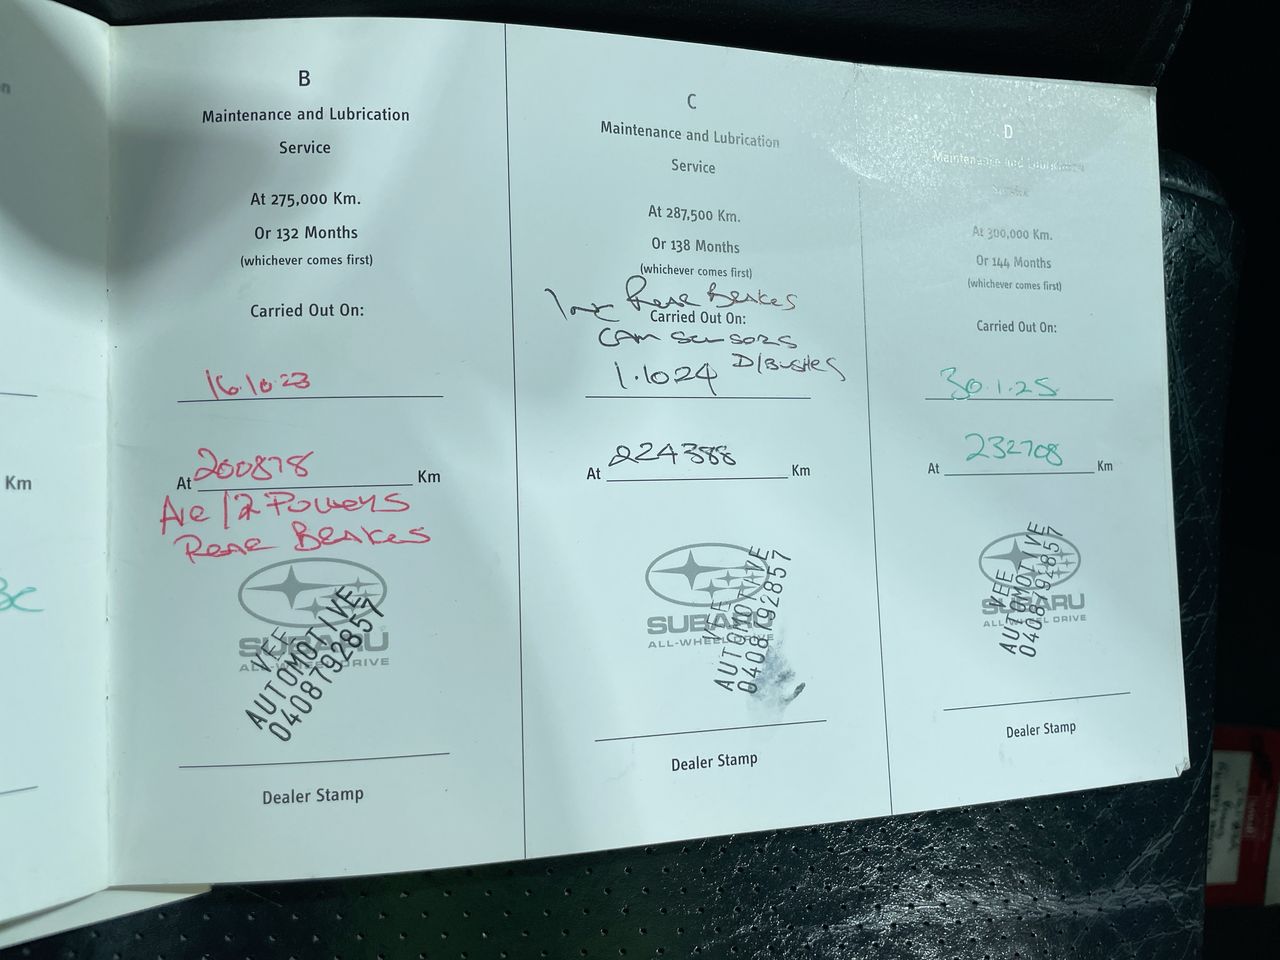 B
Maintenance and Lubrication
Service
At 275,000 Km.
Or 132 Months
(whichever comes first)
Carried Out On:
16.10.23
At 200878 Km
2 Powers
Rear Brakes
SUBARU
ALL-WHEEL DRIVE
VEE
AUTOMOTIVE
0408792857
Dealer Stamp
C
Maintenance and Lubrication
Service
At 287,500 Km.
Or 138 Months
(whichever comes first)
Rear Brakes
Carried Out On:
CAM SENSORS
D/BUSHES
1.10 24
At 224388 Km
SUBARU
ALL-WHEEL DRIVE
VEE
AUTOMOTIVE
0408792857
Dealer Stamp
D
Maintenance and Lubrication
Service
At 300,000 Km.
Or 144 Months
(whichever comes first)
Carried Out On:
30.1.25
At 232708 Km
SUBARU
ALL-WHEEL DRIVE
VEE
AUTOMOTIVE
0408792857
Dealer Stamp
Km